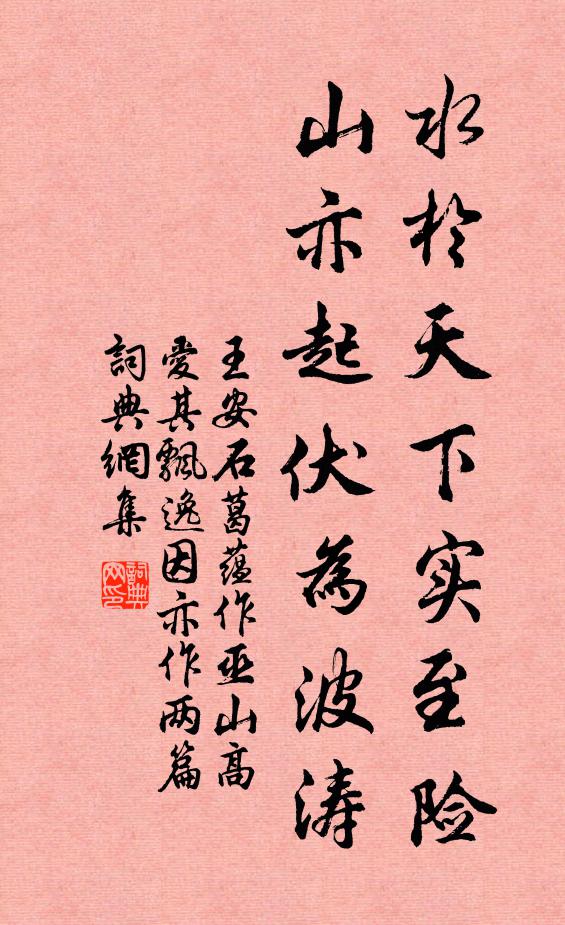 水於天下实至险
山亦起伏為波涛
王安石葛蕴作巫山高
愛其飄逸因亦作两篇
詞典網集
詞典
网印